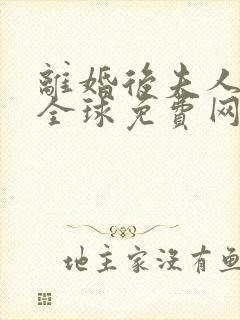 離婚後夫人
全球免費网
地主家沒有鱼